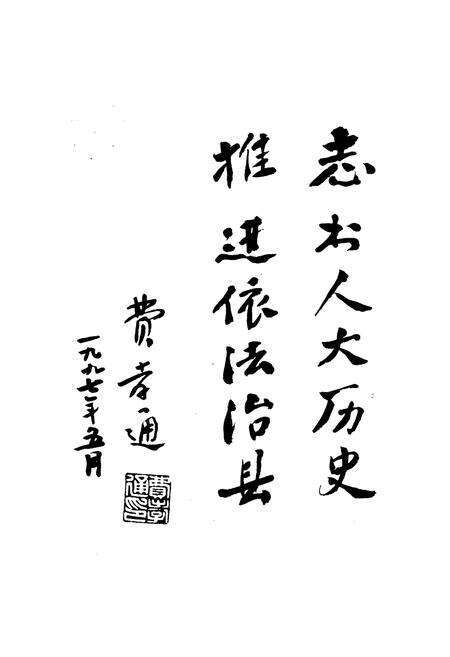 志书人大历史
推进依法治县
费孝通
一九九七年五月
費孝
通印